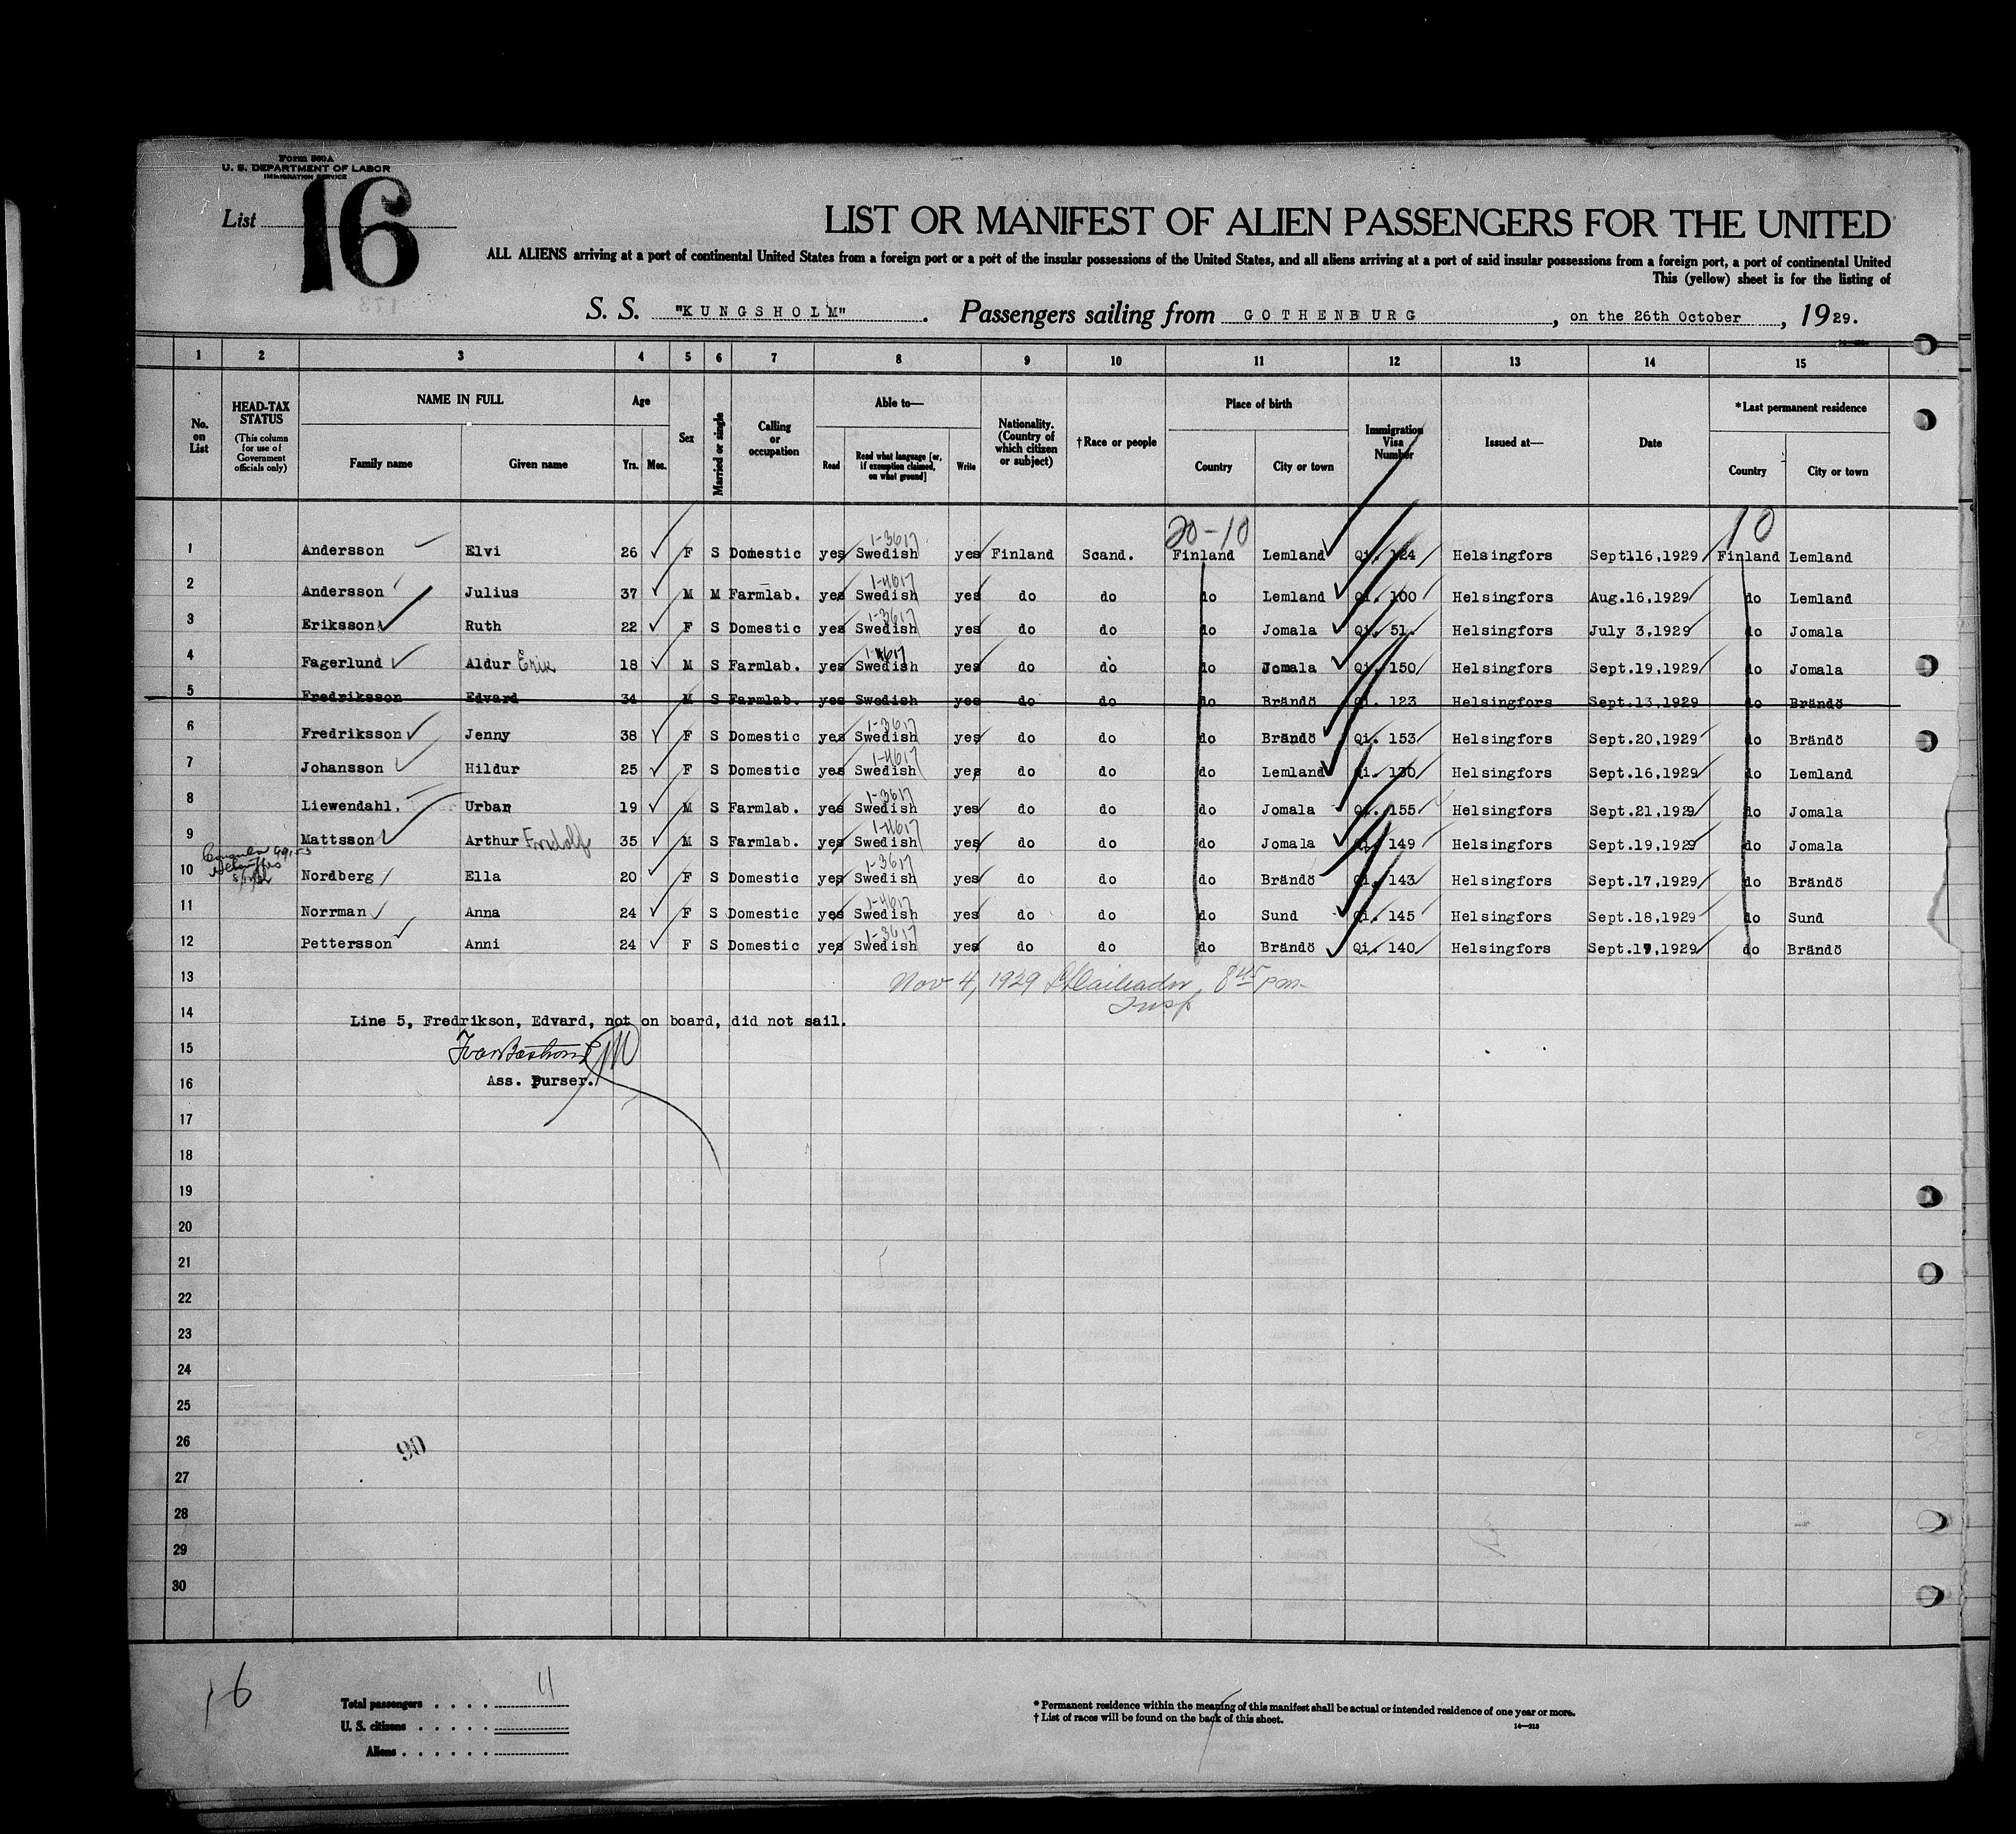 Form 500A
U. S. DEPARTMENT OF LABOR
IMMIGRATION SERVICE
List 16
LIST OR MANIFEST OF ALIEN PASSENGERS FOR THE UNITED
ALL ALIENS arriving at a port of continental United States from a foreign port or a port of the insular possessions of the United States, and all aliens arriving at a port of said insular possessions from a foreign port, a port of continental United
This (yellow) sheet is for the listing of
S. S. "KUNGSHOLM". Passengers sailing from GOTHENBURG, on the 26th October, 1929.
1 2 3 4 5 6 7 8 9 10 11 12 13 14 15
No. on List
HEAD-TAX STATUS (This column for use of Government officials only)
NAME IN FULL
Family name Given name
Age
Yrs. Mos.
Sex
Married or single
Calling or occupation
Able to—
Read Read what language [or, if exemption claimed, on what ground] Write
Nationality. (Country of which citizen or subject)
†Race or people
Place of birth
Country City or town
Immigration Visa Number
Issued at—
Date
*Last permanent residence
Country City or town
20-10 10
1-3617
1 Andersson Elvi 26 F S Domestic yes Swedish yes Finland Scand. Finland Lemland Qi. 124 Helsingfors Sept116,1929 Finland Lemland
1-4617
2 Andersson Julius 37 M M Farmlab. yes Swedish yes do do do Lemland Qi. 100 Helsingfors Aug.16,1929 do Lemland
1-3617
3 Eriksson Ruth 22 F S Domestic yes Swedish yes do do do Jomala Qi. 51. Helsingfors July 3,1929 do Jomala
1-4617
4 Fagerlund Aldur Erik 18 M S Farmlab. yes Swedish yes do do do Jomala Qi. 150 Helsingfors Sept.19,1929 do Jomala
5 Fredriksson Edvard 34 M S Farmlab. yes Swedish yes do do do Brändö Qi. 123 Helsingfors Sept.13,1929 do Brändö
1-3617
6 Fredriksson Jenny 38 F S Domestic yes Swedish yes do do do Brändö Qi. 153 Helsingfors Sept.20,1929 do Brändö
1-4617
7 Johansson Hildur 25 F S Domestic yes Swedish yes do do do Lemland Qi. 130 Helsingfors Sept.16,1929 do Lemland
1-3617
8 Liewendahl, Urban 19 M S Farmlab. yes Swedish yes do do do Jomala Qi. 155 Helsingfors Sept.21,1929 do Jomala
1-4617
9 Mattsson Arthur Fridolf 35 M S Farmlab. yes Swedish yes do do do Jomala Qi. 149 Helsingfors Sept.19,1929 do Jomala
1-3617
10 Nordberg Ella 20 F S Domestic yes Swedish yes do do do Brändö Qi. 143 Helsingfors Sept.17,1929 do Brändö
1-4617
11 Norrman Anna 24 F S Domestic yes Swedish yes do do do Sund Qi. 145 Helsingfors Sept.18,1929 do Sund
1-3617
12 Pettersson Anni 24 F S Domestic yes Swedish yes do do do Brändö Qi. 140 Helsingfors Sept.17,1929 do Brändö
13 Nov 4, 1929 8 45 pm
Insp
14 Line 5, Fredrikson, Edvard, not on board, did not sail.
15
16 Ass. Purser.
17
18
19
20
21
22
23
24
25
26 90
27
28
29
30
16
Total passengers . . . . 11
U. S. citizens . . . . .
Aliens . . . . . .
* Permanent residence within the meaning of this manifest shall be actual or intended residence of one year or more.
† List of races will be found on the back of this sheet.
14—213